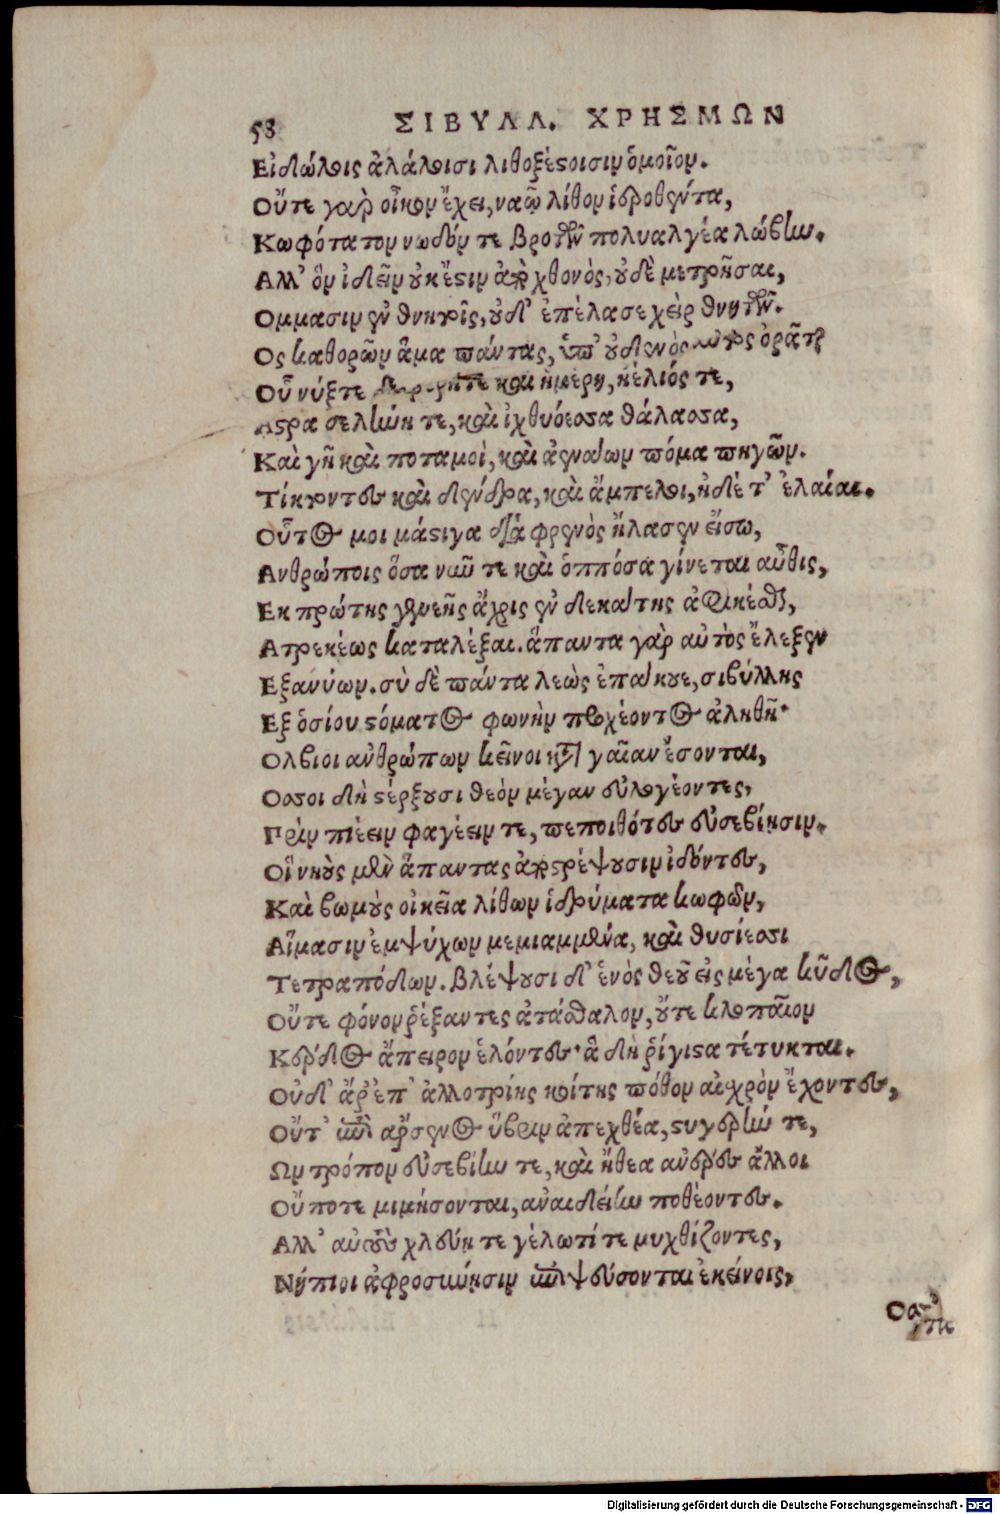 58 ΣΙΒΥΛΛ. ΧΡΗΣΜΩΝ
Εἰδώλοις ἀλάλοισι λιθοξέστοισιν ὁμοῖον.
Οὔτε γὰρ οἶκον ἔχει, ναῷ λίθον ἱδρυθέντα,
Κωφότατον νωδόν τε βροτῶν πολυαλγέα λώβην.
Αλλ' ὃν ἰδεῖν οὐκ ἔστιν ἀπὸ χθονὸς, οὐδὲ μετρῆσαι,
Ομμασιν ἐν θνητοῖς, οὐδ' ἐπέλασε χεὶρ θνητῶν.
Ος καθορῶν ἅμα πάντας, ὑπ' οὐδενὸς αὐτὸς ὁρᾶται
Οὗ νύξτε καὶ ἡμέρη, ἠέλιός τε,
Αστρα σελήνη τε, καὶ ἰχθυόεσσα θάλασσα,
Καὶ γῆ καὶ ποταμοὶ, καὶ ἀενάων πόμα πηγῶν.
Τίκτοντες καὶ δένδρα, καὶ ἄμπελοι, ἠδέ τ' ἐλαίαι.
Οὗτος μοι μάστιγα διὰ φρενὸς ἤλασεν εἴσω,
Ανθρώποις ὅσα νῦν τε καὶ ὁππόσα γίνεται αὖθις,
Εκ πρώτης γενεῆς ἄχρις ἐν δεκάτης ἀφικέσθαι,
Ατρεκέως καταλέξαι. ἅπαντα γὰρ αὐτὸς ἔλεξεν
Εξανύων. σὺ δὲ πάντα λεὼς ἐπάκουε, σιβύλλης
Εξ ὁσίου στόματος φωνὴν προχέοντος ἀληθῆ·
Ολβιοι ἀνθρώπων κεῖνοι κατὰ γαῖαν ἔσονται,
Οσσοι δὴ στέρξουσι θεὸν μέγαν εὐλογέοντες,
Πρὶν πιέειν φαγέειν τε, πεποιθότες εὐσεβίῃσιν.
Οἳ νηοὺς μὲν ἅπαντας ἀποστρέψουσιν ἰδόντες,
Καὶ βωμοὺς οἰκεῖα λίθων ἱδρύματα κωφῶν,
Αἵμασιν ἐμψύχων μεμιαμμένα, καὶ θυσίεσσι
Τετραπόδων. βλέψουσι δ' ἑνὸς θεοῦ εἰς μέγα κῦδος,
Οὔτε φόνον ῥέξαντες ἀτάσθαλον, οὔτε κλοπαῖον
Κέρδος ἄπειρον ἑλόντες· ἃ δὴ ῥίγιστα τέτυκται.
Οὐδ' ἄρ' ἐπ' ἀλλοτρίης κοίτης πόθον αἰσχρὸν ἔχοντες,
Οὔτ' ἐπὶ ἄρσενος ὕβριν ἀπεχθέα, στυγερήν τε,
Ων τρόπον εὐσεβίην τε, καὶ ἤθεα ἀνέρες ἄλλοι
Οὔποτε μιμήσονται, ἀναιδείην ποθέοντες.
Αλλ' αὐτοὺς χλεύῃ τε γέλωτί τε μυχθίζοντες,
Νήπιοι ἀφροσύνῃσιν ἐπιψεύσονται ἐκείνοις,
Digitalisierung gefördert durch die Deutsche Forschungsgemeinschaft - DFG